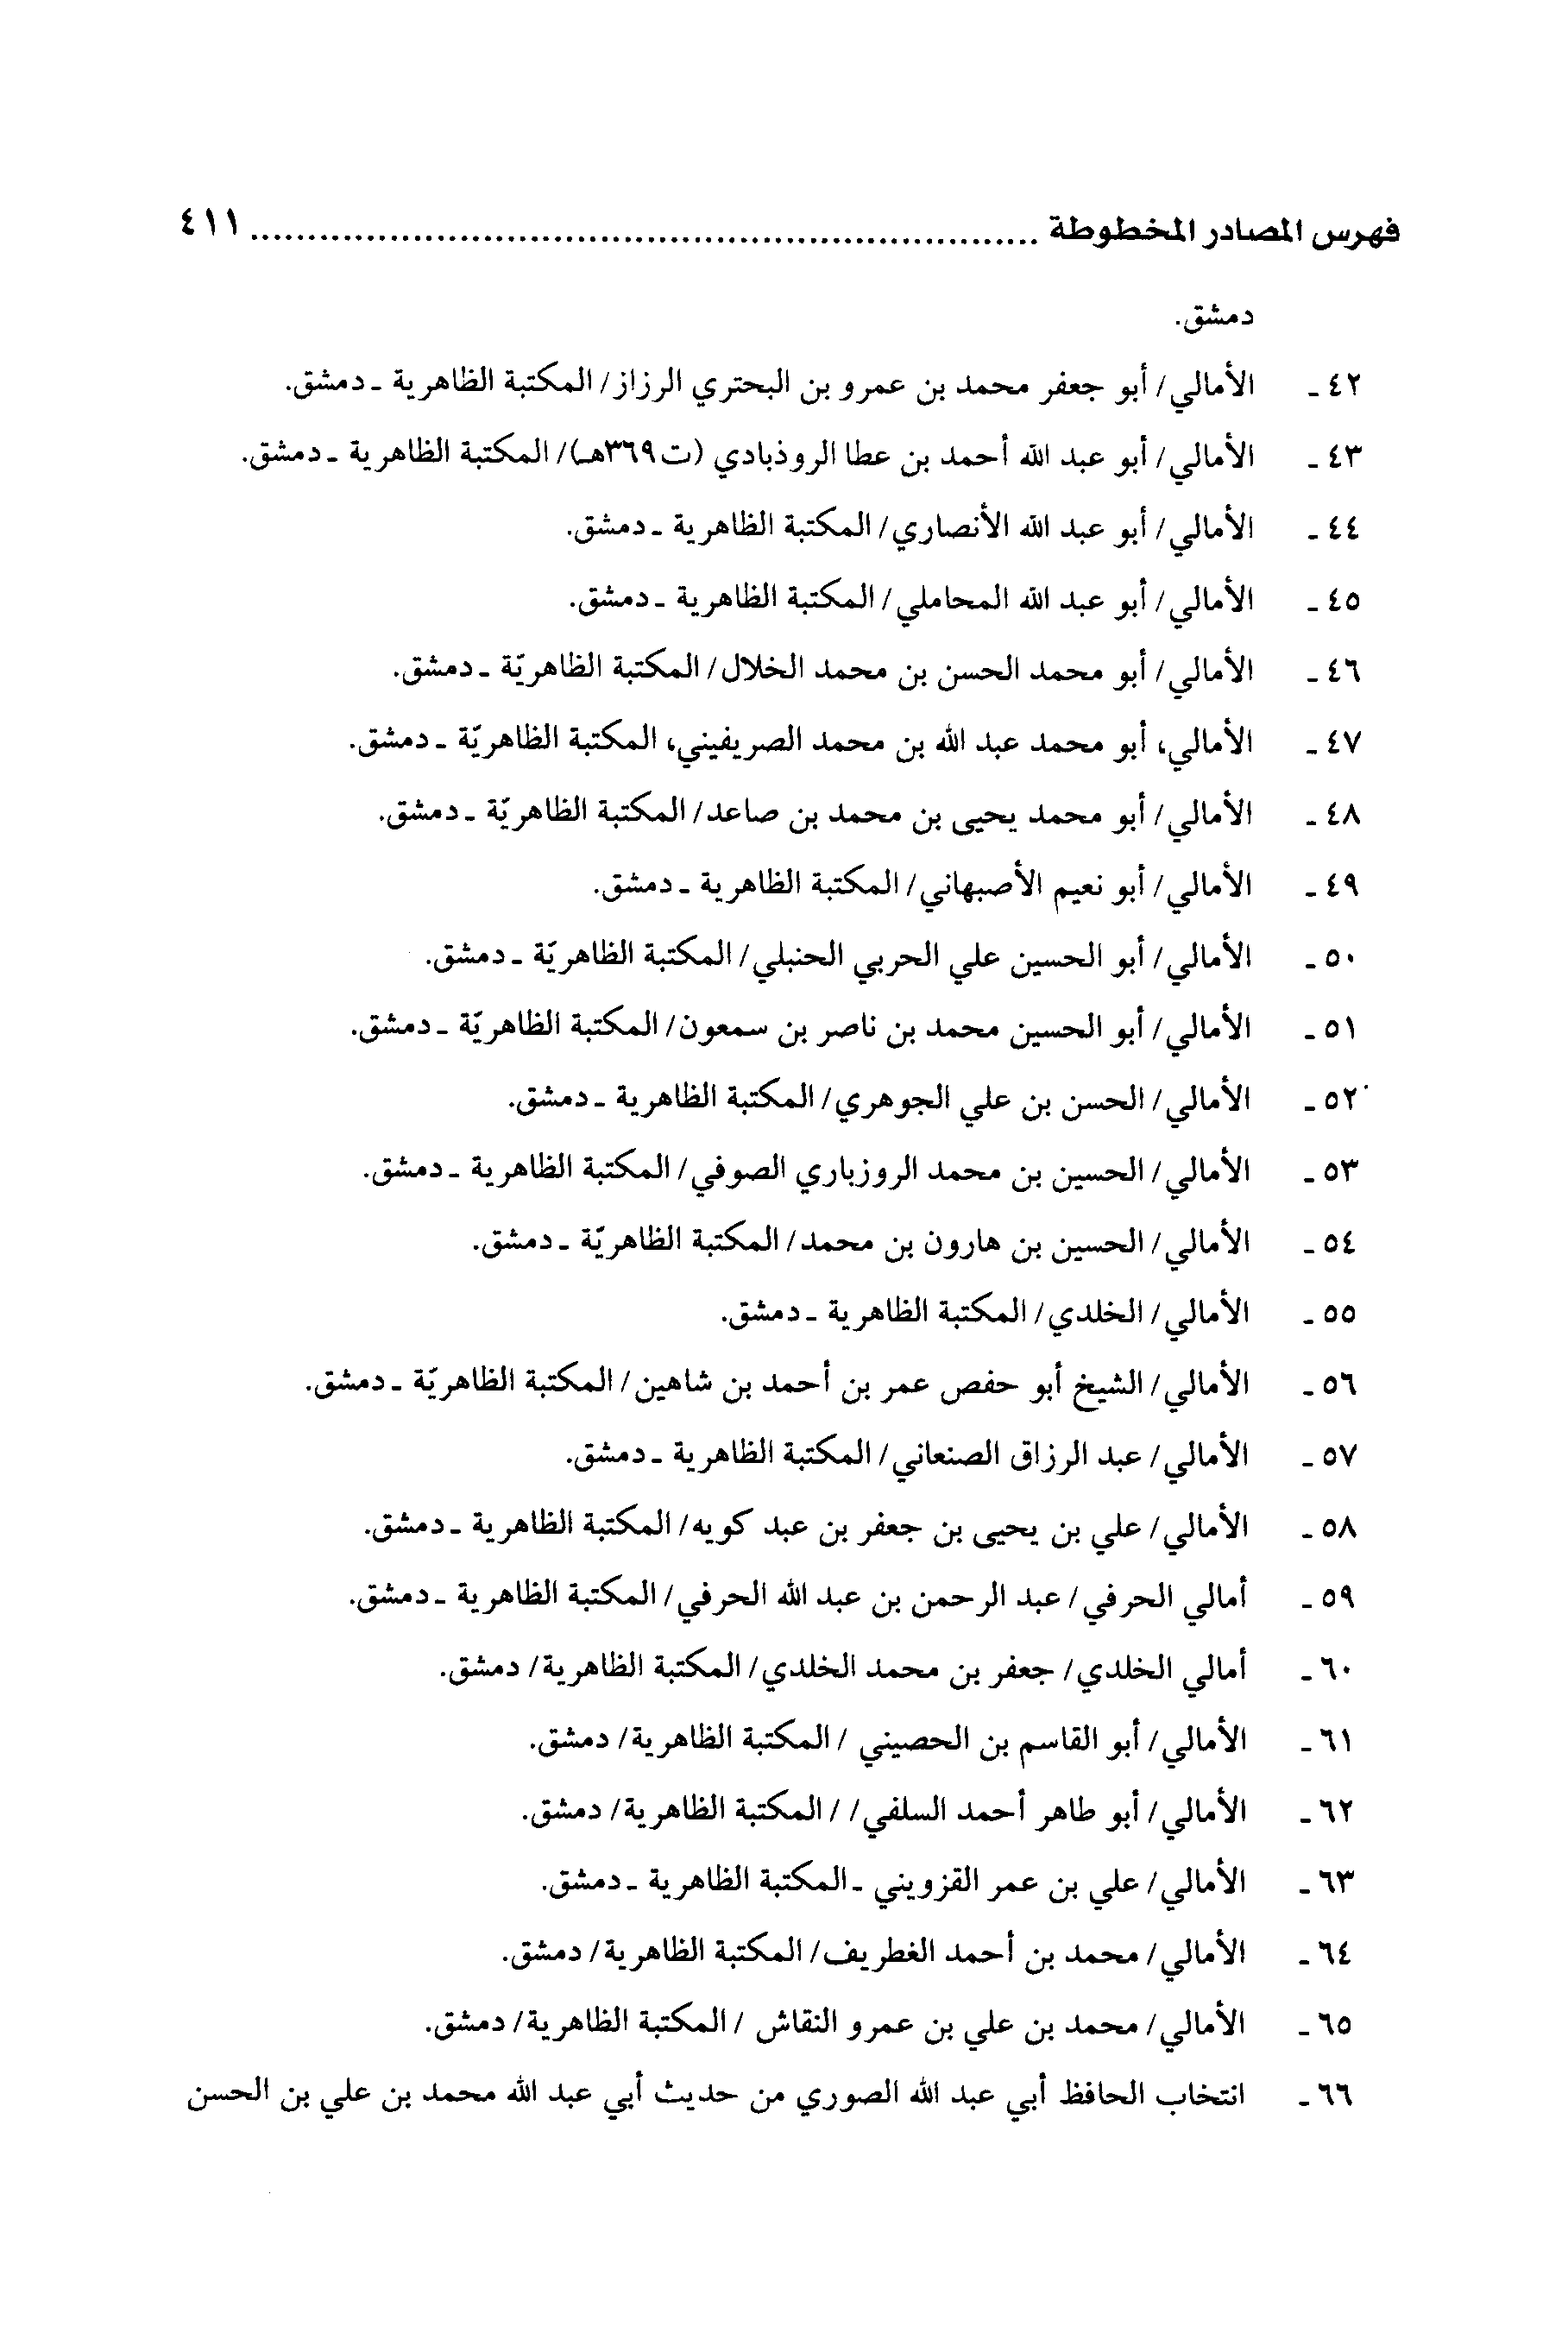 فهرس المصادر المخطوطة ........................................................................ ٤١١
دمشق.
٤٢ ـ الأمالي/ أبو جعفر محمد بن عمرو بن البحتري الرزاز/ المكتبة الظاهرية ـ دمشق.
٤٣ ـ الأمالي/ أبو عبد الله أحمد بن عطا الروذبادي (ت٣٦٩هـ)/ المكتبة الظاهرية ـ دمشق.
٤٤ ـ الأمالي/ أبو عبد الله الأنصاري/ المكتبة الظاهرية ـ دمشق.
٤٥ ـ الأمالي/ أبو عبد الله المحاملي/ المكتبة الظاهرية ـ دمشق.
٤٦ ـ الأمالي/ أبو محمد الحسن بن محمد الخلال/ المكتبة الظاهريّة ـ دمشق.
٤٧ ـ الأمالي، أبو محمد عبد الله بن محمد الصريفيني، المكتبة الظاهريّة ـ دمشق.
٤٨ ـ الأمالي/ أبو محمد يحيى بن محمد بن صاعد/ المكتبة الظاهريّة ـ دمشق.
٤٩ ـ الأمالي/ أبو نعيم الأصبهاني/ المكتبة الظاهرية ـ دمشق.
٥٠ ـ الأمالي/ أبو الحسين علي الحربي الحنبلي/ المكتبة الظاهريّة ـ دمشق.
٥١ ـ الأمالي/ أبو الحسين محمد بن ناصر بن سمعون/ المكتبة الظاهريّة ـ دمشق.
٥٢ ـ الأمالي/ الحسن بن علي الجوهري/ المكتبة الظاهرية ـ دمشق.
٥٣ ـ الأمالي/ الحسين بن محمد الروزباري الصوفي/ المكتبة الظاهرية ـ دمشق.
٥٤ ـ الأمالي/ الحسين بن هارون بن محمد/ المكتبة الظاهريّة ـ دمشق.
٥٥ ـ الأمالي/ الخلدي/ المكتبة الظاهرية ـ دمشق.
٥٦ ـ الأمالي/ الشيخ أبو حفص عمر بن أحمد بن شاهين/ المكتبة الظاهريّة ـ دمشق.
٥٧ ـ الأمالي/ عبد الرزاق الصنعاني/ المكتبة الظاهرية ـ دمشق.
٥٨ ـ الأمالي/ علي بن يحيى بن جعفر بن عبد كويه/ المكتبة الظاهرية ـ دمشق.
٥٩ ـ أمالي الحرفي/ عبد الرحمن بن عبد الله الحرفي/ المكتبة الظاهرية ـ دمشق.
٦٠ ـ أمالي الخلدي/ جعفر بن محمد الخلدي/ المكتبة الظاهرية/ دمشق.
٦١ ـ الأمالي/ أبو القاسم بن الحصيني / المكتبة الظاهرية/ دمشق.
٦٢ ـ الأمالي/ أبو طاهر أحمد السلفي/ / المكتبة الظاهرية/ دمشق.
٦٣ ـ الأمالي/ علي بن عمر القزويني ـ المكتبة الظاهرية ـ دمشق.
٦٤ ـ الأمالي/ محمد بن أحمد الغطريف/ المكتبة الظاهرية/ دمشق.
٦٥ ـ الأمالي/ محمد بن علي بن عمرو النقاش / المكتبة الظاهرية/ دمشق.
٦٦ ـ انتخاب الحافظ أبي عبد الله الصوري من حديث أبي عبد الله محمد بن علي بن الحسن